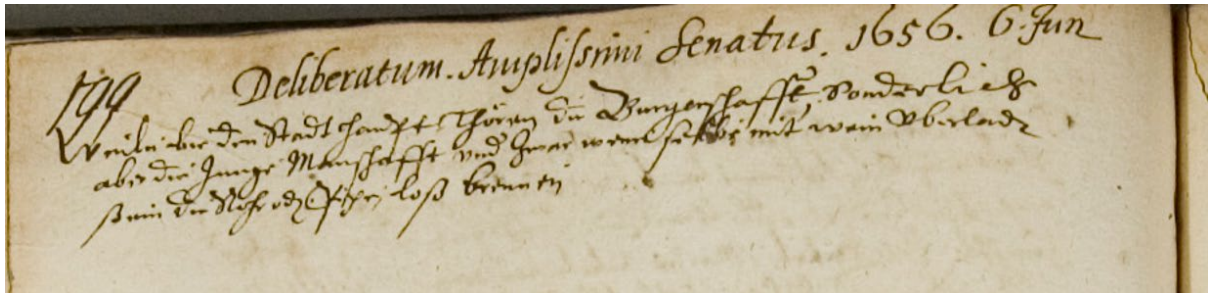 199 Deliberatum. Amplissimi Senatus. 1656. 6. Jun
Weilen bei den Stadt haupt Thören die Burgerschafft, Sonderlich
aber die Junge Manschafft und zwar wenn sie sich mit wein Uberladen
sein die Rohr oder loß brennen